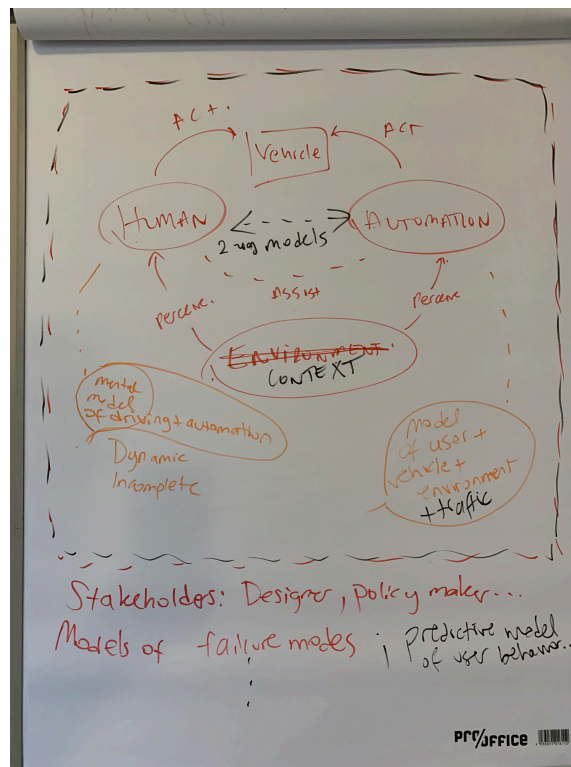 ACT.
ACT
Vehicle
HUMAN
AUTOMATION
2 ug models
Assist
perceive.
perceive
ENVIRONMENT.
CONTEXT
mental
model
of driving + automation
Dynamic
Incomplete
model
of user +
vehicle +
environment
+ traffic
Stakeholders: Designer, policy maker...
Models of failure modes ; predictive model
of user behavior...
PRO/OFFICE